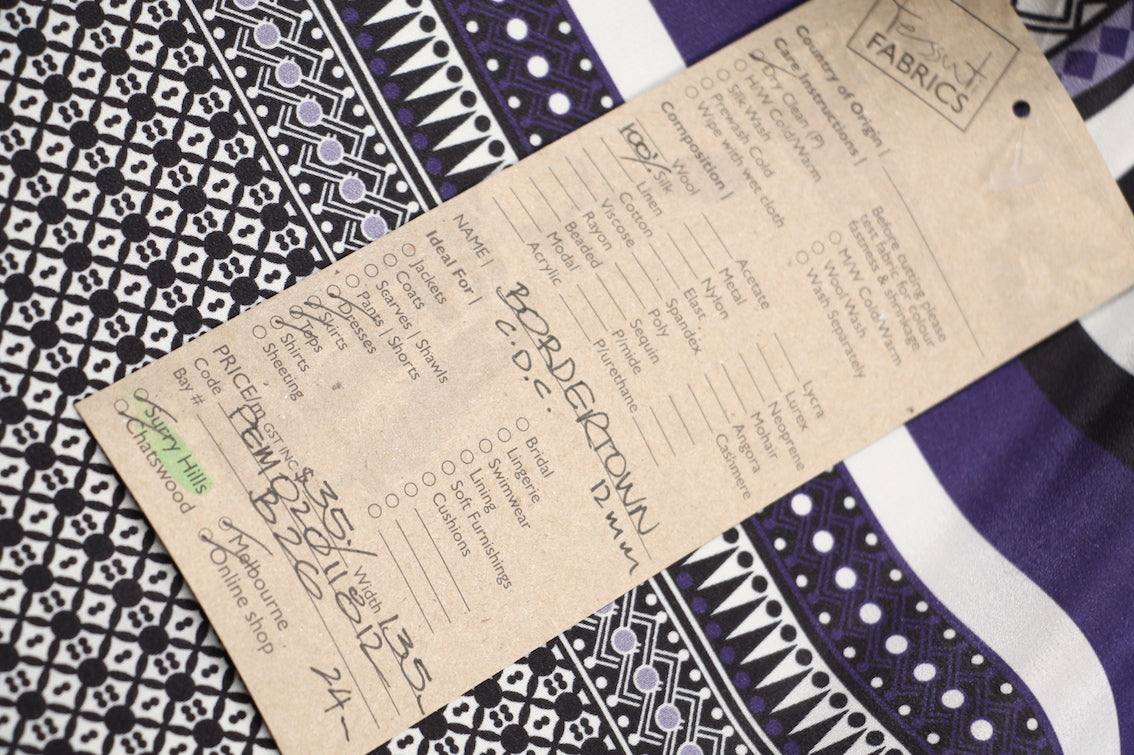 Tessuti
FABRICS
Country of Origin |
Care Instructions |
Dry Clean (P)
H/W Cold/Warm
Silk Wash
Prewash Cold
Wipe with wet cloth
Before cutting please
test fabric for colour
fastness & shrinkage
M/W Cold/Warm
Wool Wash
Wash Separately
Composition |
Wool
100% Silk
Linen
Cotton
Viscose
Rayon
Beaded
Modal
Acrylic
Acetate
Metal
Nylon
Elast.
Spandex
Poly
Sequin
P/mide
P/urethane
Lycra
Lurex
Neoprene
Mohair
Angora
Cashmere
NAME | BORDERTOWN
C.D.C. 12mm
Ideal For |
Jackets
Coats
Scarves | Shawls
Pants | Shorts
Dresses
Skirts
Tops
Shirts
Sheeting
Bridal
Lingerie
Swimwear
Lining
Soft Furnishings
Cushions
PRICE/m GST INC $35/ Width 135
Code
Bay # B26
Surry Hills
Chatswood
Melbourne
Online shop
24-